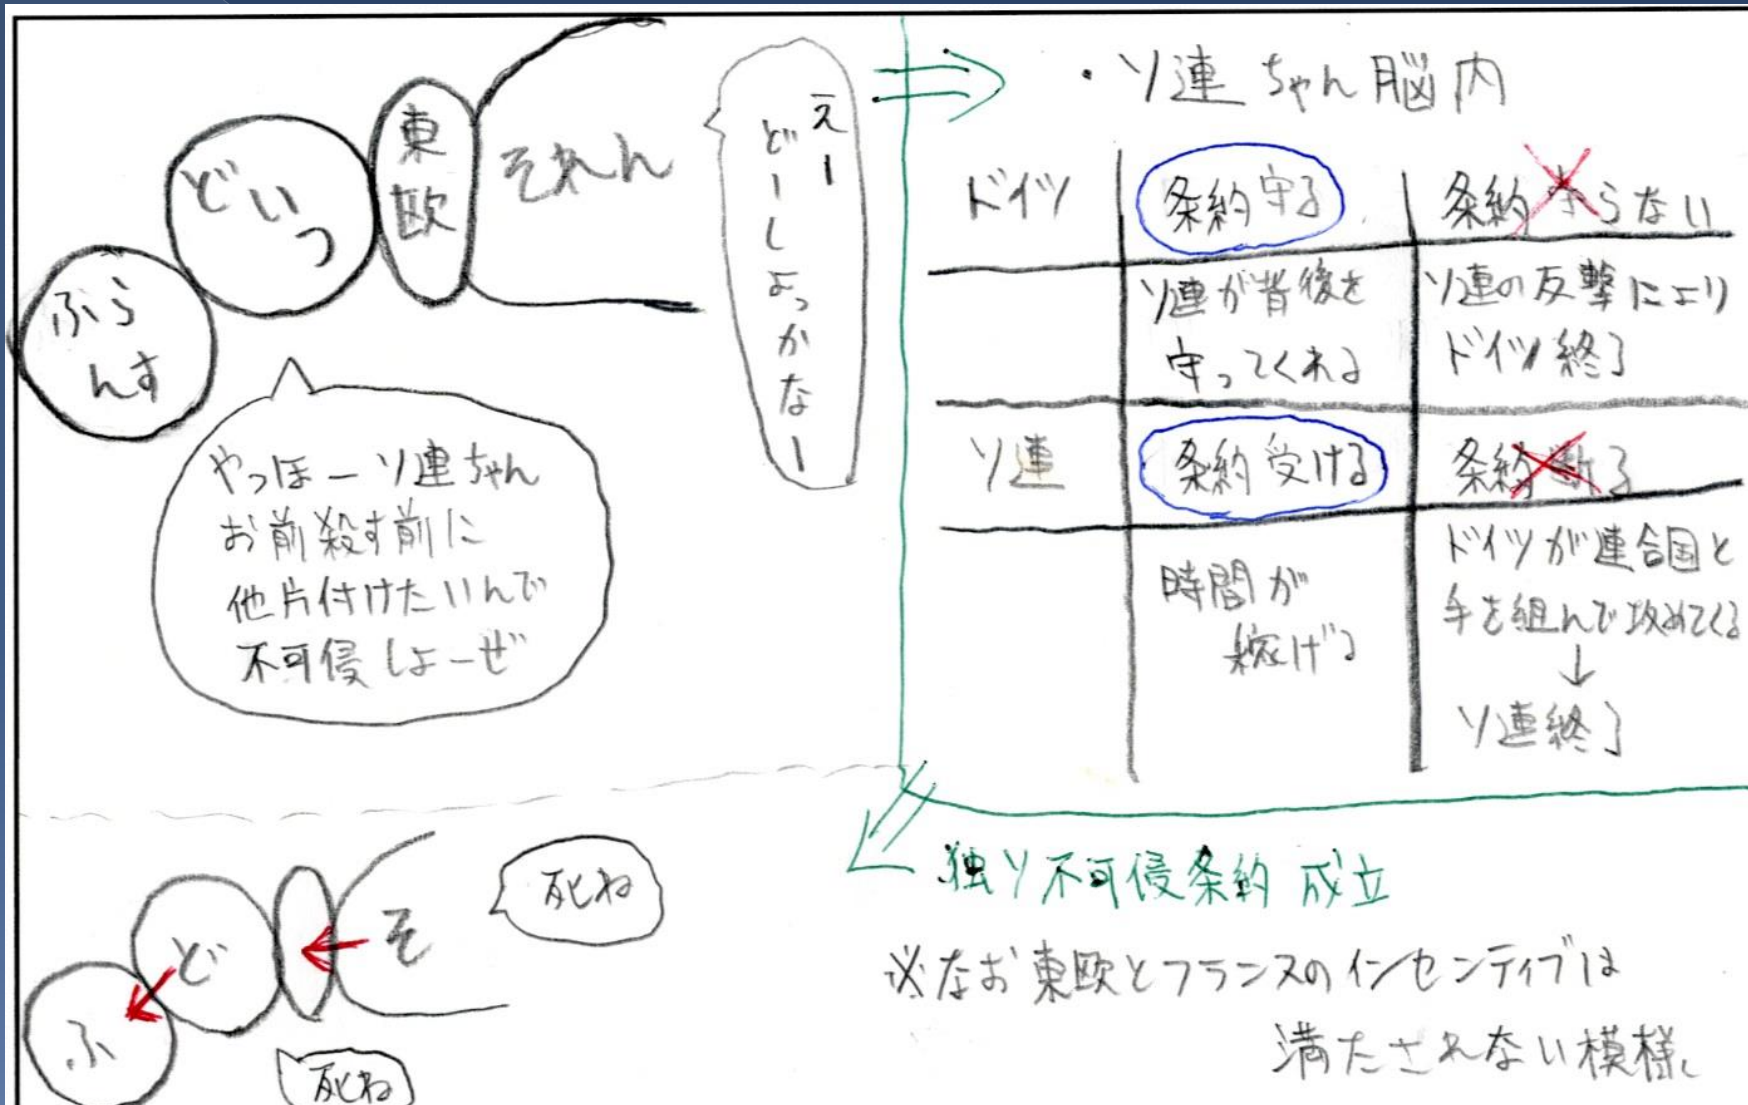 ふら
んす
どい
つ
東
欧
それん
えー
どーしよっかなー
やっほーソ連ちゃん
お前殺す前に
他片付けたいんで
不可侵しよーぜ
・ソ連ちゃん脳内
ドイツ 条約守る 条約守らない
ソ連が背後を
守ってくれる
ソ連の反撃により
ドイツ終了
ソ連 条約受ける 条約断る
時間が
稼げる
ドイツが連合国と
手を組んで攻めてくる
↓
ソ連終了
独ソ不可侵条約 成立
※なお東欧とフランスのインセンティブは
満たされない模様、
ふ
ど
そ
死ね
死ね